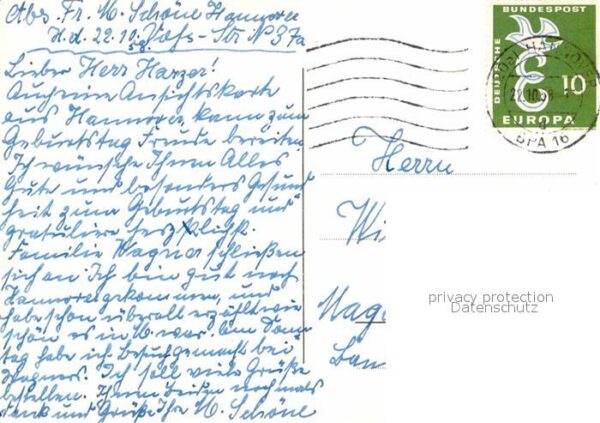 Abs. Fr. M. Schöne Hannover
H. d. 22.10. Voss-Str. N 37a
58.
Lieber Herr Harzer!
Auch eine Ansichtskarte
aus Hannover kann zum
Geburtstag Freude bereiten.
Ich wünsche Ihnen Alles
Gute und besonders Gesund
heit zum Geburtstag und
gratuliere herzlichst.
Familie Wagner schließen
sich an. Ich bin gut nach
Hannover gekommen, und
habe schon überall erzählt wie
schön es in W. war. Am Donn
tag habe ich Besuch gemacht bei
Wagners. Ich soll viele Grüße
bestellen. Ihnen beiden nochmals
Dank und Grüße Ihre M. Schöne
DEUTSCHE
BUNDESPOST
10
EUROPA
HANNOVER
22.10.58
BPA 16
Herrn
Wi
Mag
privacy protection
Datenschutz